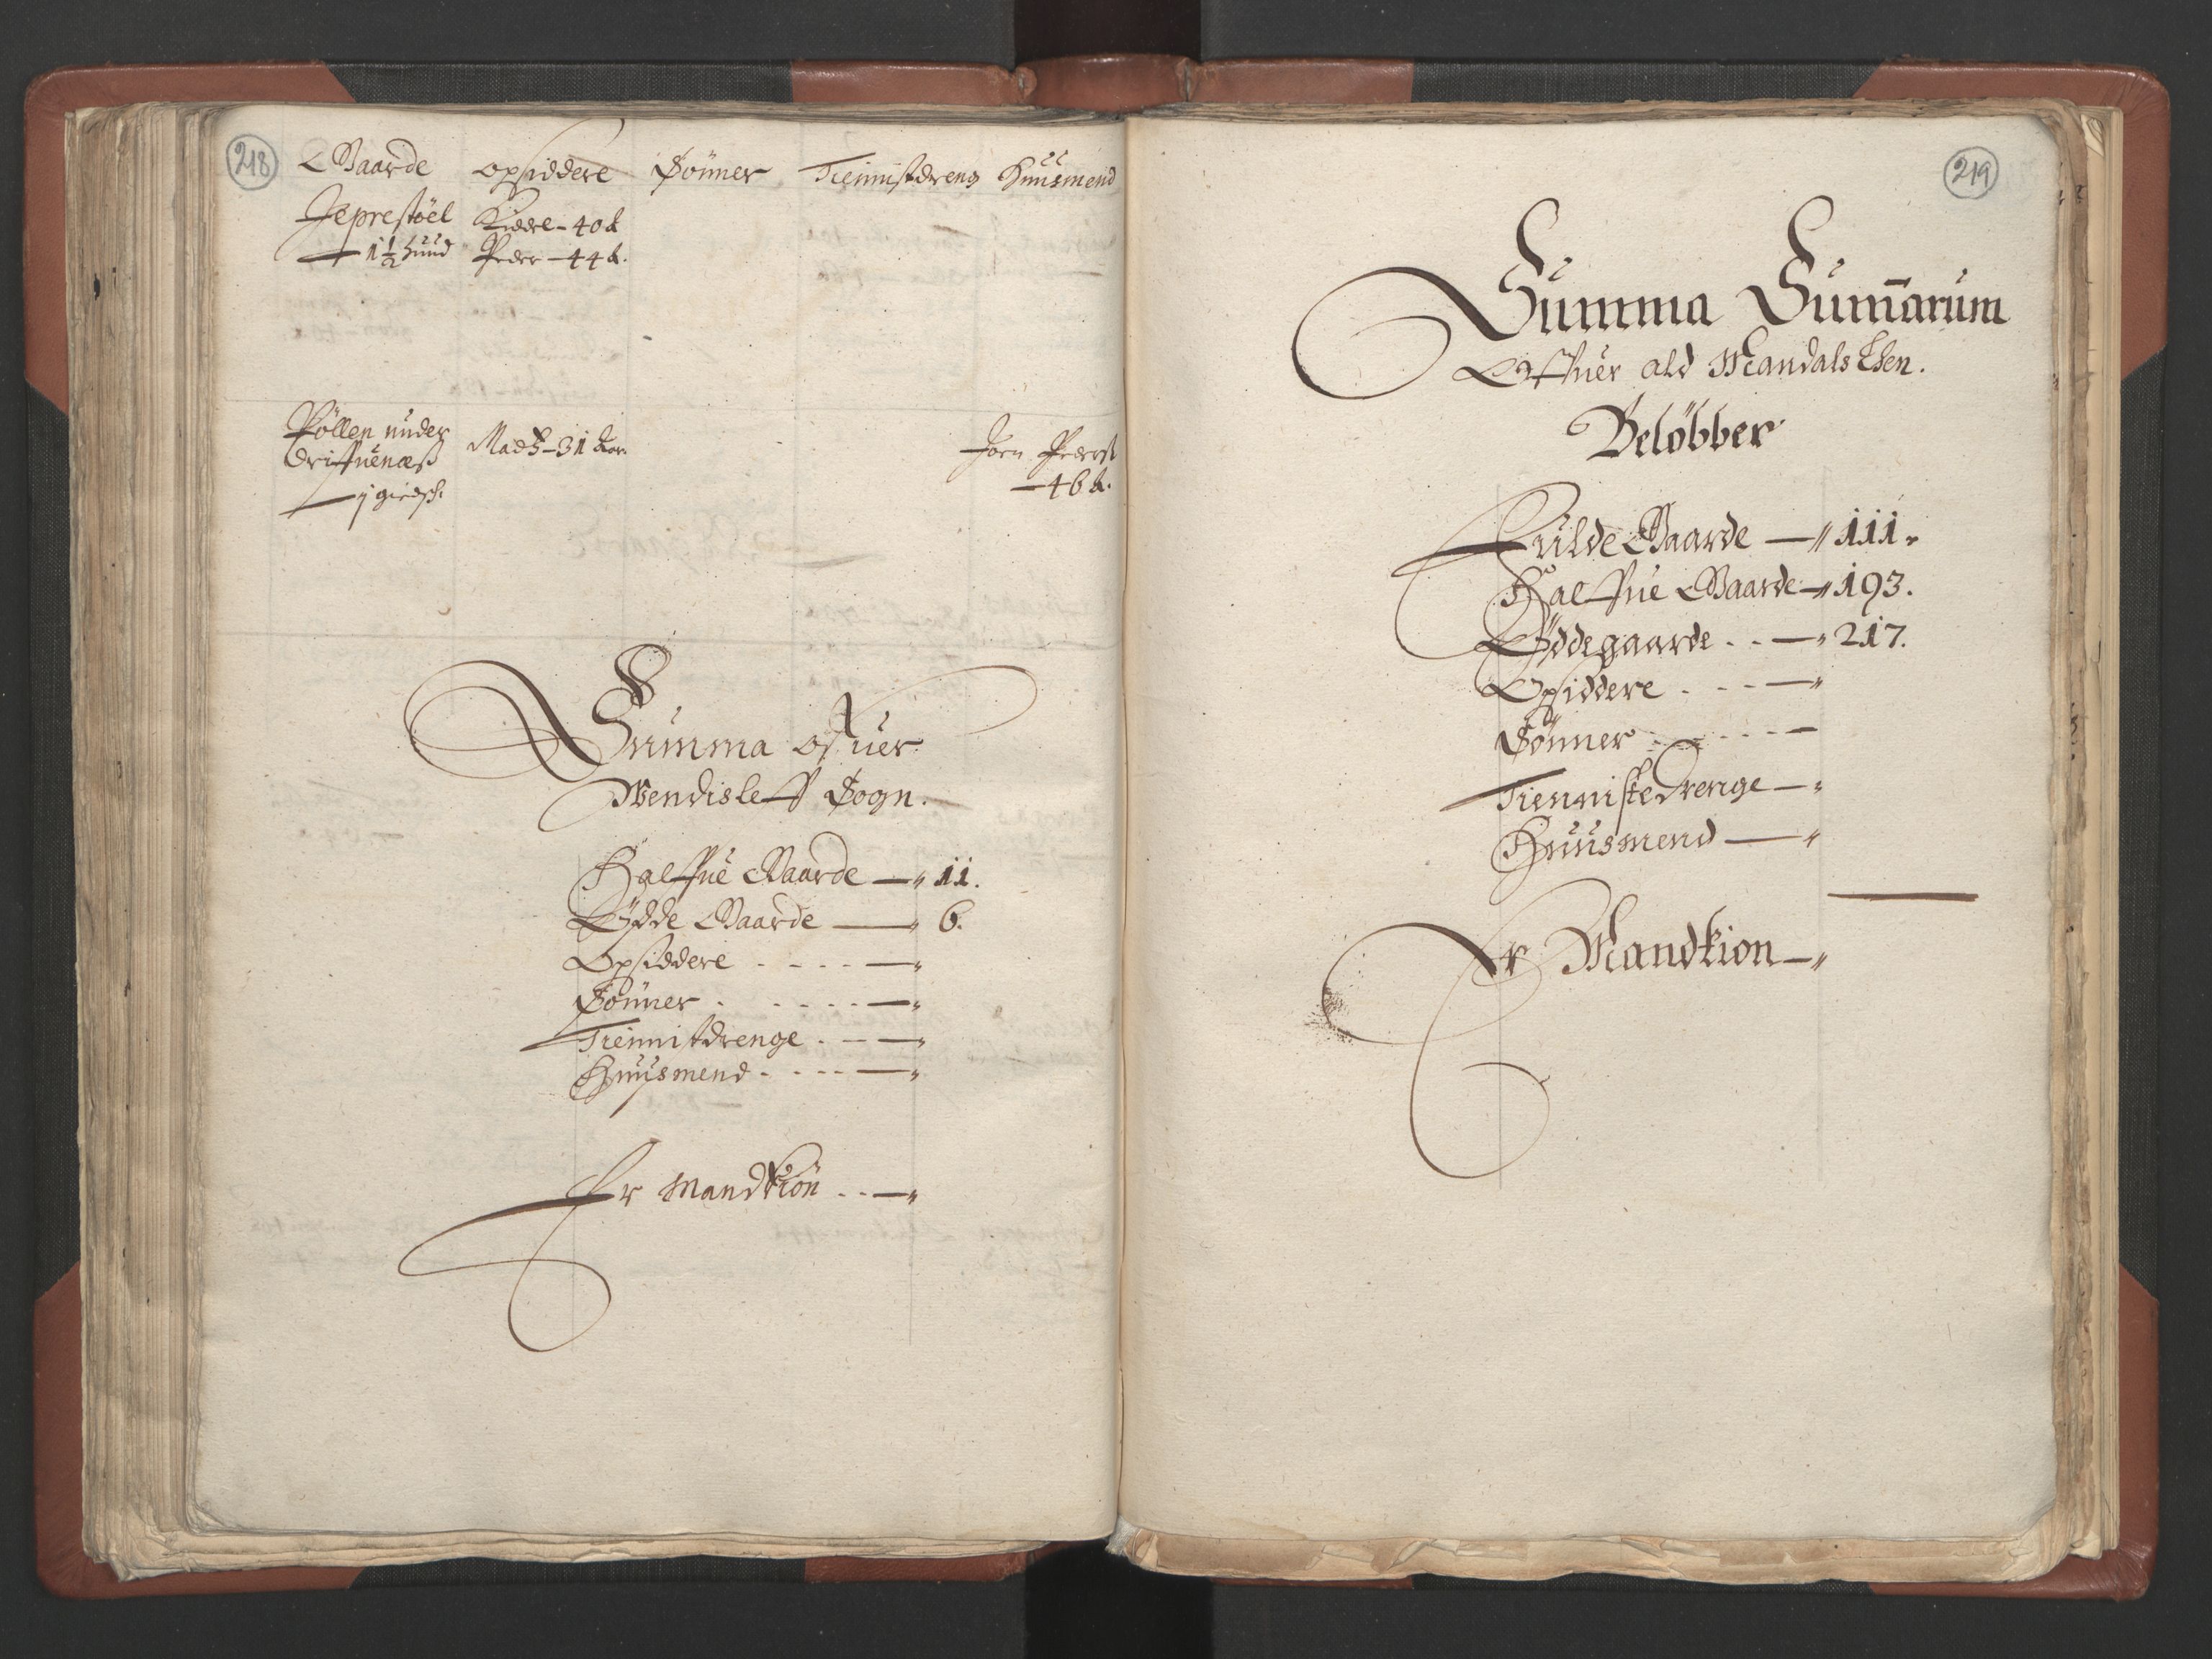 218
Gaarde opsiddere Sönner Tiennistdreng Huusmend
Jeprestöel Kiddel - 40 å
1½ hund Peder - 44 å.
Röllen under Madtz - 31 Aar. Joen Peders
Driffuenæss - 46 å.
Summa offuer
Wendisleff Sogn.
Halffue Gaarde — 11.
Ödde Gaarde — 6.
Opsiddere - - - - —
Sönner - - - - —
Tiennistdrenge - - - —
Huusmend - - - - —
Er Mandkiön - - —
219
Summa Sumarum
Offuer ald Mandals Lhen.
Belöbber
Fulde Gaarde — 111.
Halffue Gaarde — 193.
Öddegaarde - - — 217.
Opsiddere - - - —
Sönner - - - - —
Tiennistedrenge —
Huusmend —
Er Mandkion —